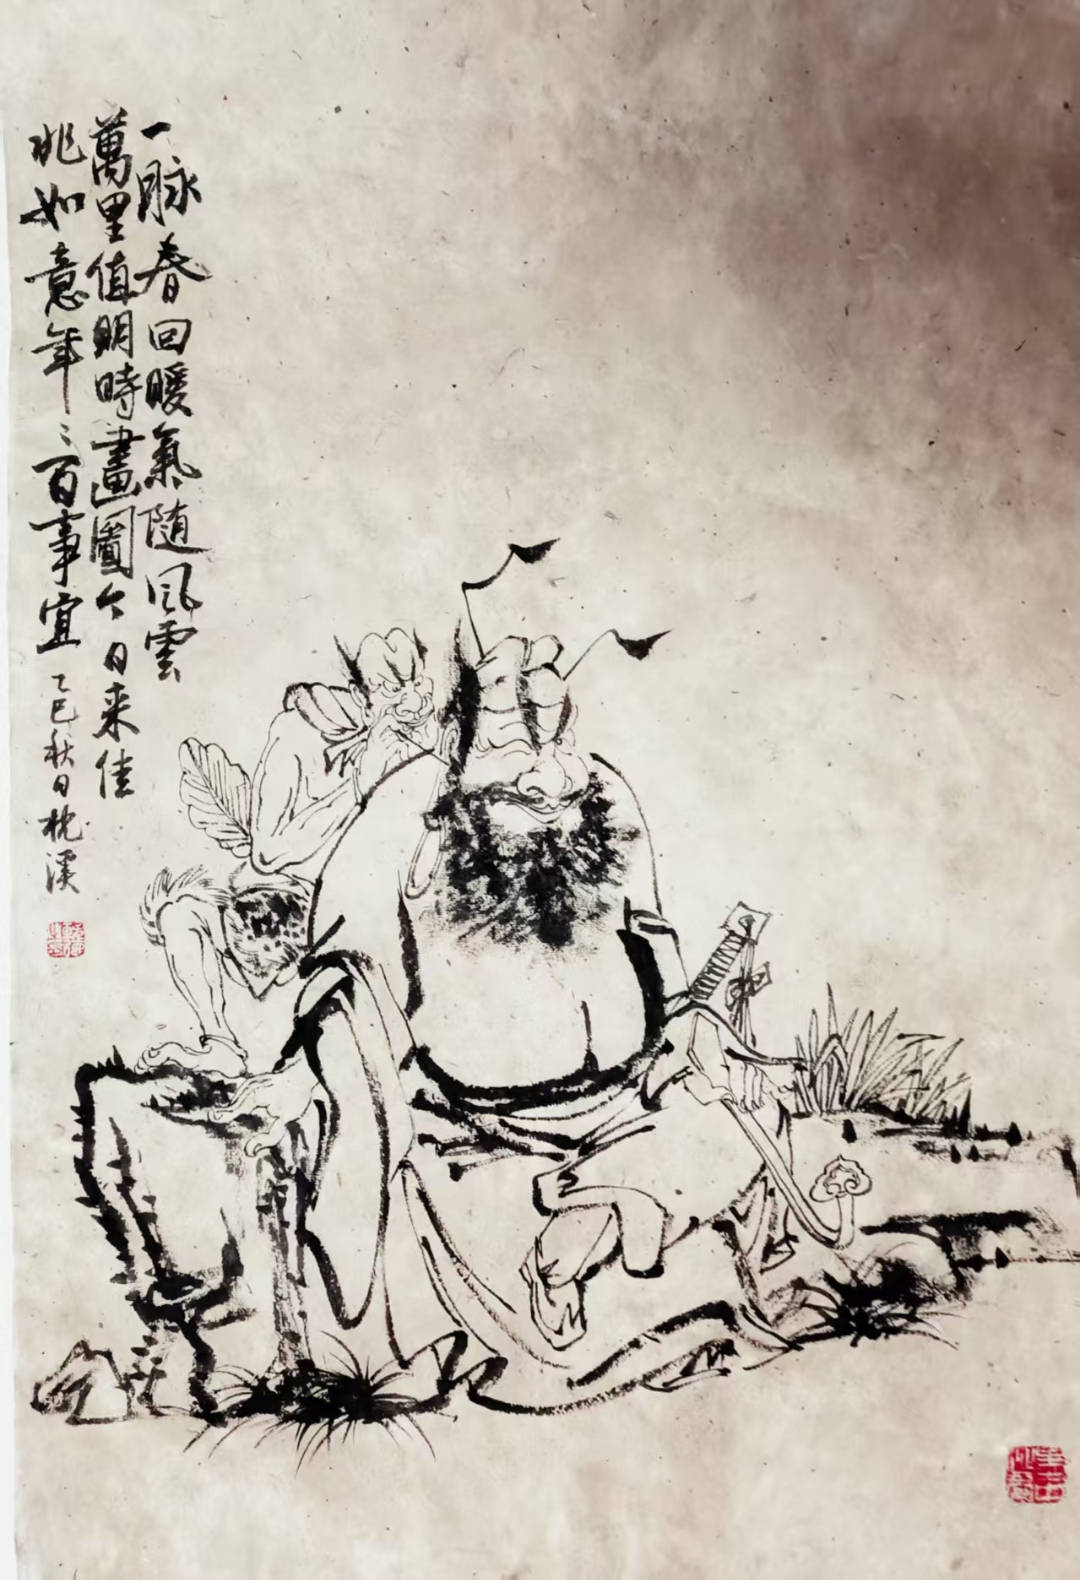 一脉春回暖氣随風雲
萬里值明時畫圖今日来佳
兆如意年〻百事宜
乙巳秋日枕溪